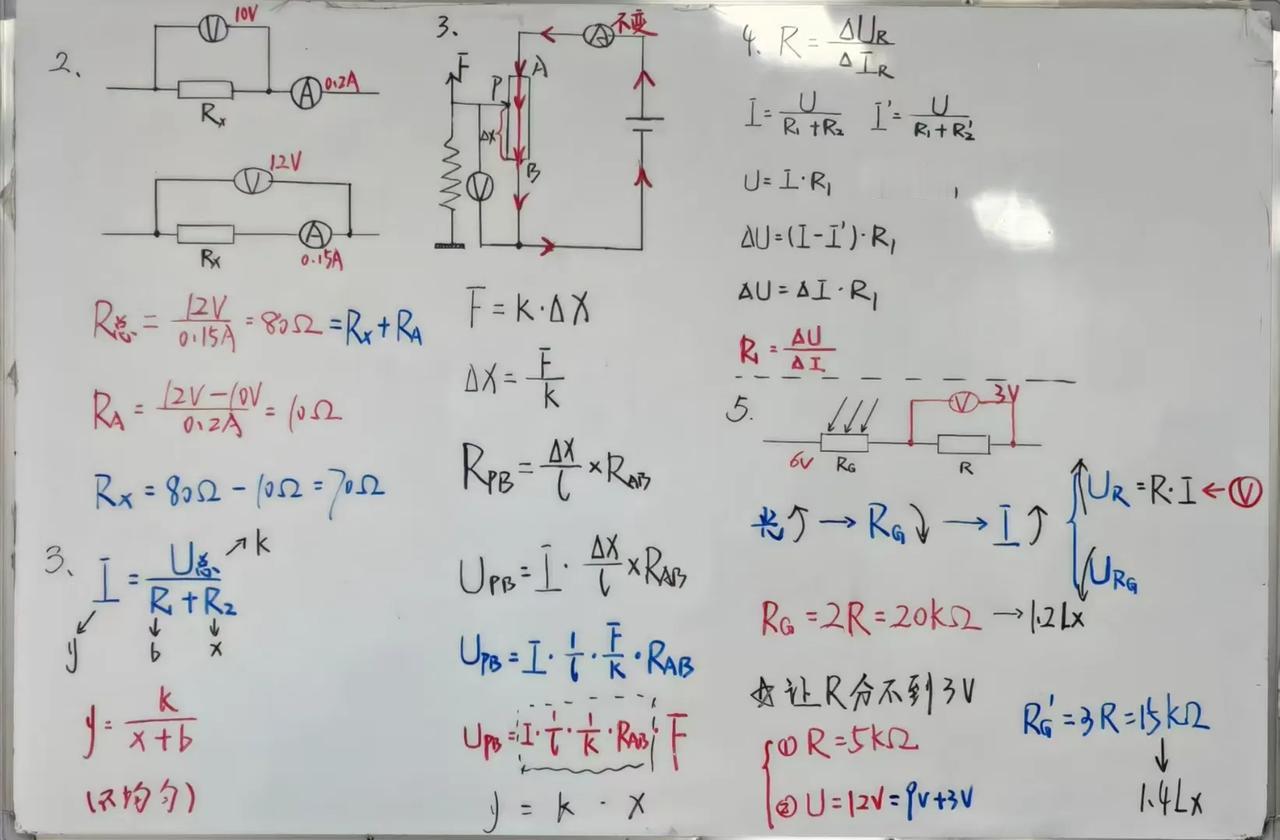 2.
V 10V
Rx A 0.2A
V 12V
Rx A 0.15A
R总 = 12V/0.15A = 80Ω = Rx + RA
RA = 12V-10V/0.2A = 10Ω
Rx = 80Ω - 10Ω = 70Ω
3、 I = U总/R1 + R2 ↗ k
y b x
y = k/x + b
(不均匀)
3. A 不变
F P A
Δx
V B
F = k·ΔX
ΔX = F/k
RPB = ΔX/l × RAB
UPB = I · ΔX/l × RAB
UPB = I · 1/l · F/k · RAB
UPB = I · 1/l · 1/k · RAB · F
y = k · x
4. R = ΔUR/ΔIR
I = U/R1 + R2 I' = U/R1 + R2'
U = I · R1
ΔU = (I - I') · R1
ΔU = ΔI · R1
R1 = ΔU/ΔI
5. V 3V
6V RG R
光↑ → RG↓ → I↑ UR = R·I ← V
URG
RG = 2R = 20kΩ → 1.2Lx
☆让R分不到3V
① R = 5kΩ
② U = 12V = 9V + 3V
RG' = 3R = 15kΩ
↓
1.4Lx